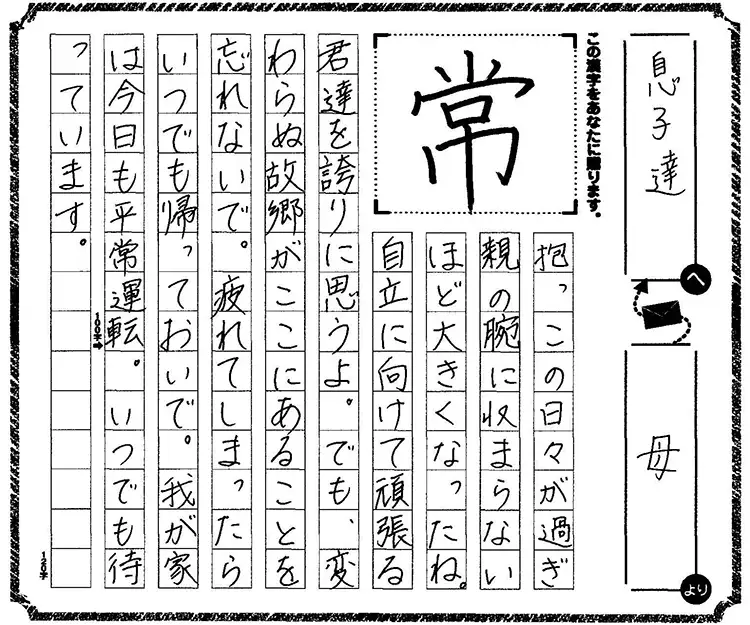 息子達
へ
母
より
この漢字をあなたに贈ります。
常
抱っこの日々が過ぎ
親の腕に収まらない
ほど大きくなったね。
自立に向けて頑張る
君達を誇りに思うよ。でも、変
わらぬ故郷がここにあることを
忘れないで。疲れてしまったら
いつでも帰っておいで。我が家
は今日も平常運転。いつでも待
っています。
100字
120字